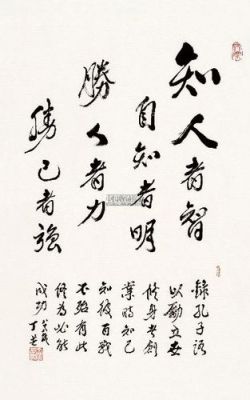 知人者智
自知者明
勝人者力
勝己者強
錄孔子語
以勵立世
修身者創
業時知己
知彼百戰
不殆有此
修為必能
成功